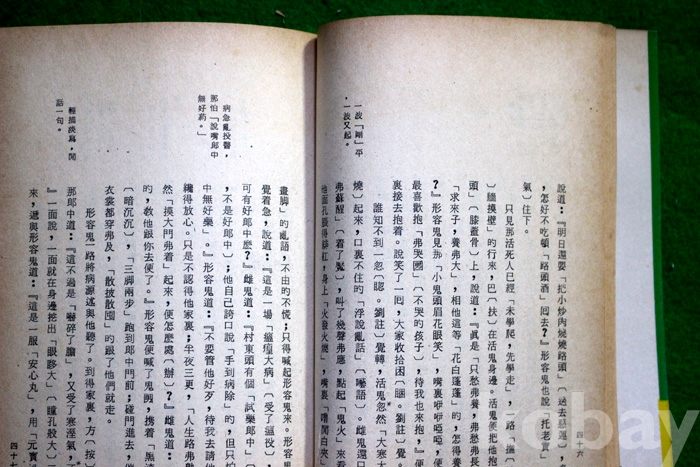 四十六
說道：『明日還要「把小炒肉燒燒路頭」〔過去
，怎好不吃頓「路頭酒」囘去？』形容鬼也說〔托老實
氣〕住下。
只見那活死人已經「未學爬，先學走」，一路
〕牆摸壁」的行來，巴〔扶〕在活鬼身邊。活鬼便把他抱
頭〔膝蓋骨〕上，說道：『眞是「只愁弗養，弗愁弗長
「求來子，養弗大」，相他這等「花白蓬蓬」的，怎得養
？』形容鬼見那「小鬼頭眉花眼笑」，嘴裏咿咿啞啞，便
最喜歡抱「弗哭〔不哭的孩子〕，待我也來抱。』
裏接去抱着。說笑了一囘，大家收拾困〔睏。劉註〕覺。
誰知不到一忽〔劉註〕覺轉，活鬼忽然「大寒大
燒〕起來，口裏不住的「浮說亂話」〔囈語〕。雌鬼還只
弗蘇醒」〔着了魘〕，叫了幾聲弗應，點起「鬼火」來看
他面孔脹得緋紅，身上「火發火燒」，嘴裏
一波「剛」平
，一波又起。
畫脚」的亂語，不由的不慌；只得喊起形容鬼來。形容鬼
覺着急，說道：『這是一場「瘟㾮大病」〔受了瘟疫〕，
可有好郎中麽？』雌鬼道：『村東頭有個「試藥郎中」
，不是好郎中〕；他自己誇口說「手到病除」的，但只怕
中無好藥」。』形容鬼道：『不要管他好歹，待我去請他
纔得放心。只是不認得他家裏；半夜三更，人生路弗熟
然「摸大門弗着」起來，便怎麽處〔辦〕？』雌鬼道：
的，敎他跟你去便了。』形容鬼便喊了鬼囡，携着「黑漆
〔暗沉沉〕，「三脚兩步」跑到郎中門前；碰門進去，催
衣裳都穿弗及，「散披散囤」的跟了他們就走。
形容鬼一路將病源述與他聽了。到得家裏，方〔按〕
那郎中道：『這不過是「嚇碎了膽」，又受了寒濕氣，
』一面說，一面就在身邊挖出「眼眵大」〔瞳孔般大〕
來，遞與形容鬼道：『這是一服「安心丸」，用「元寶
病急亂投醫，
那怕「說嘴郎中
無好葯。」
輕描淡寫，閒
話一句。
四十
bay